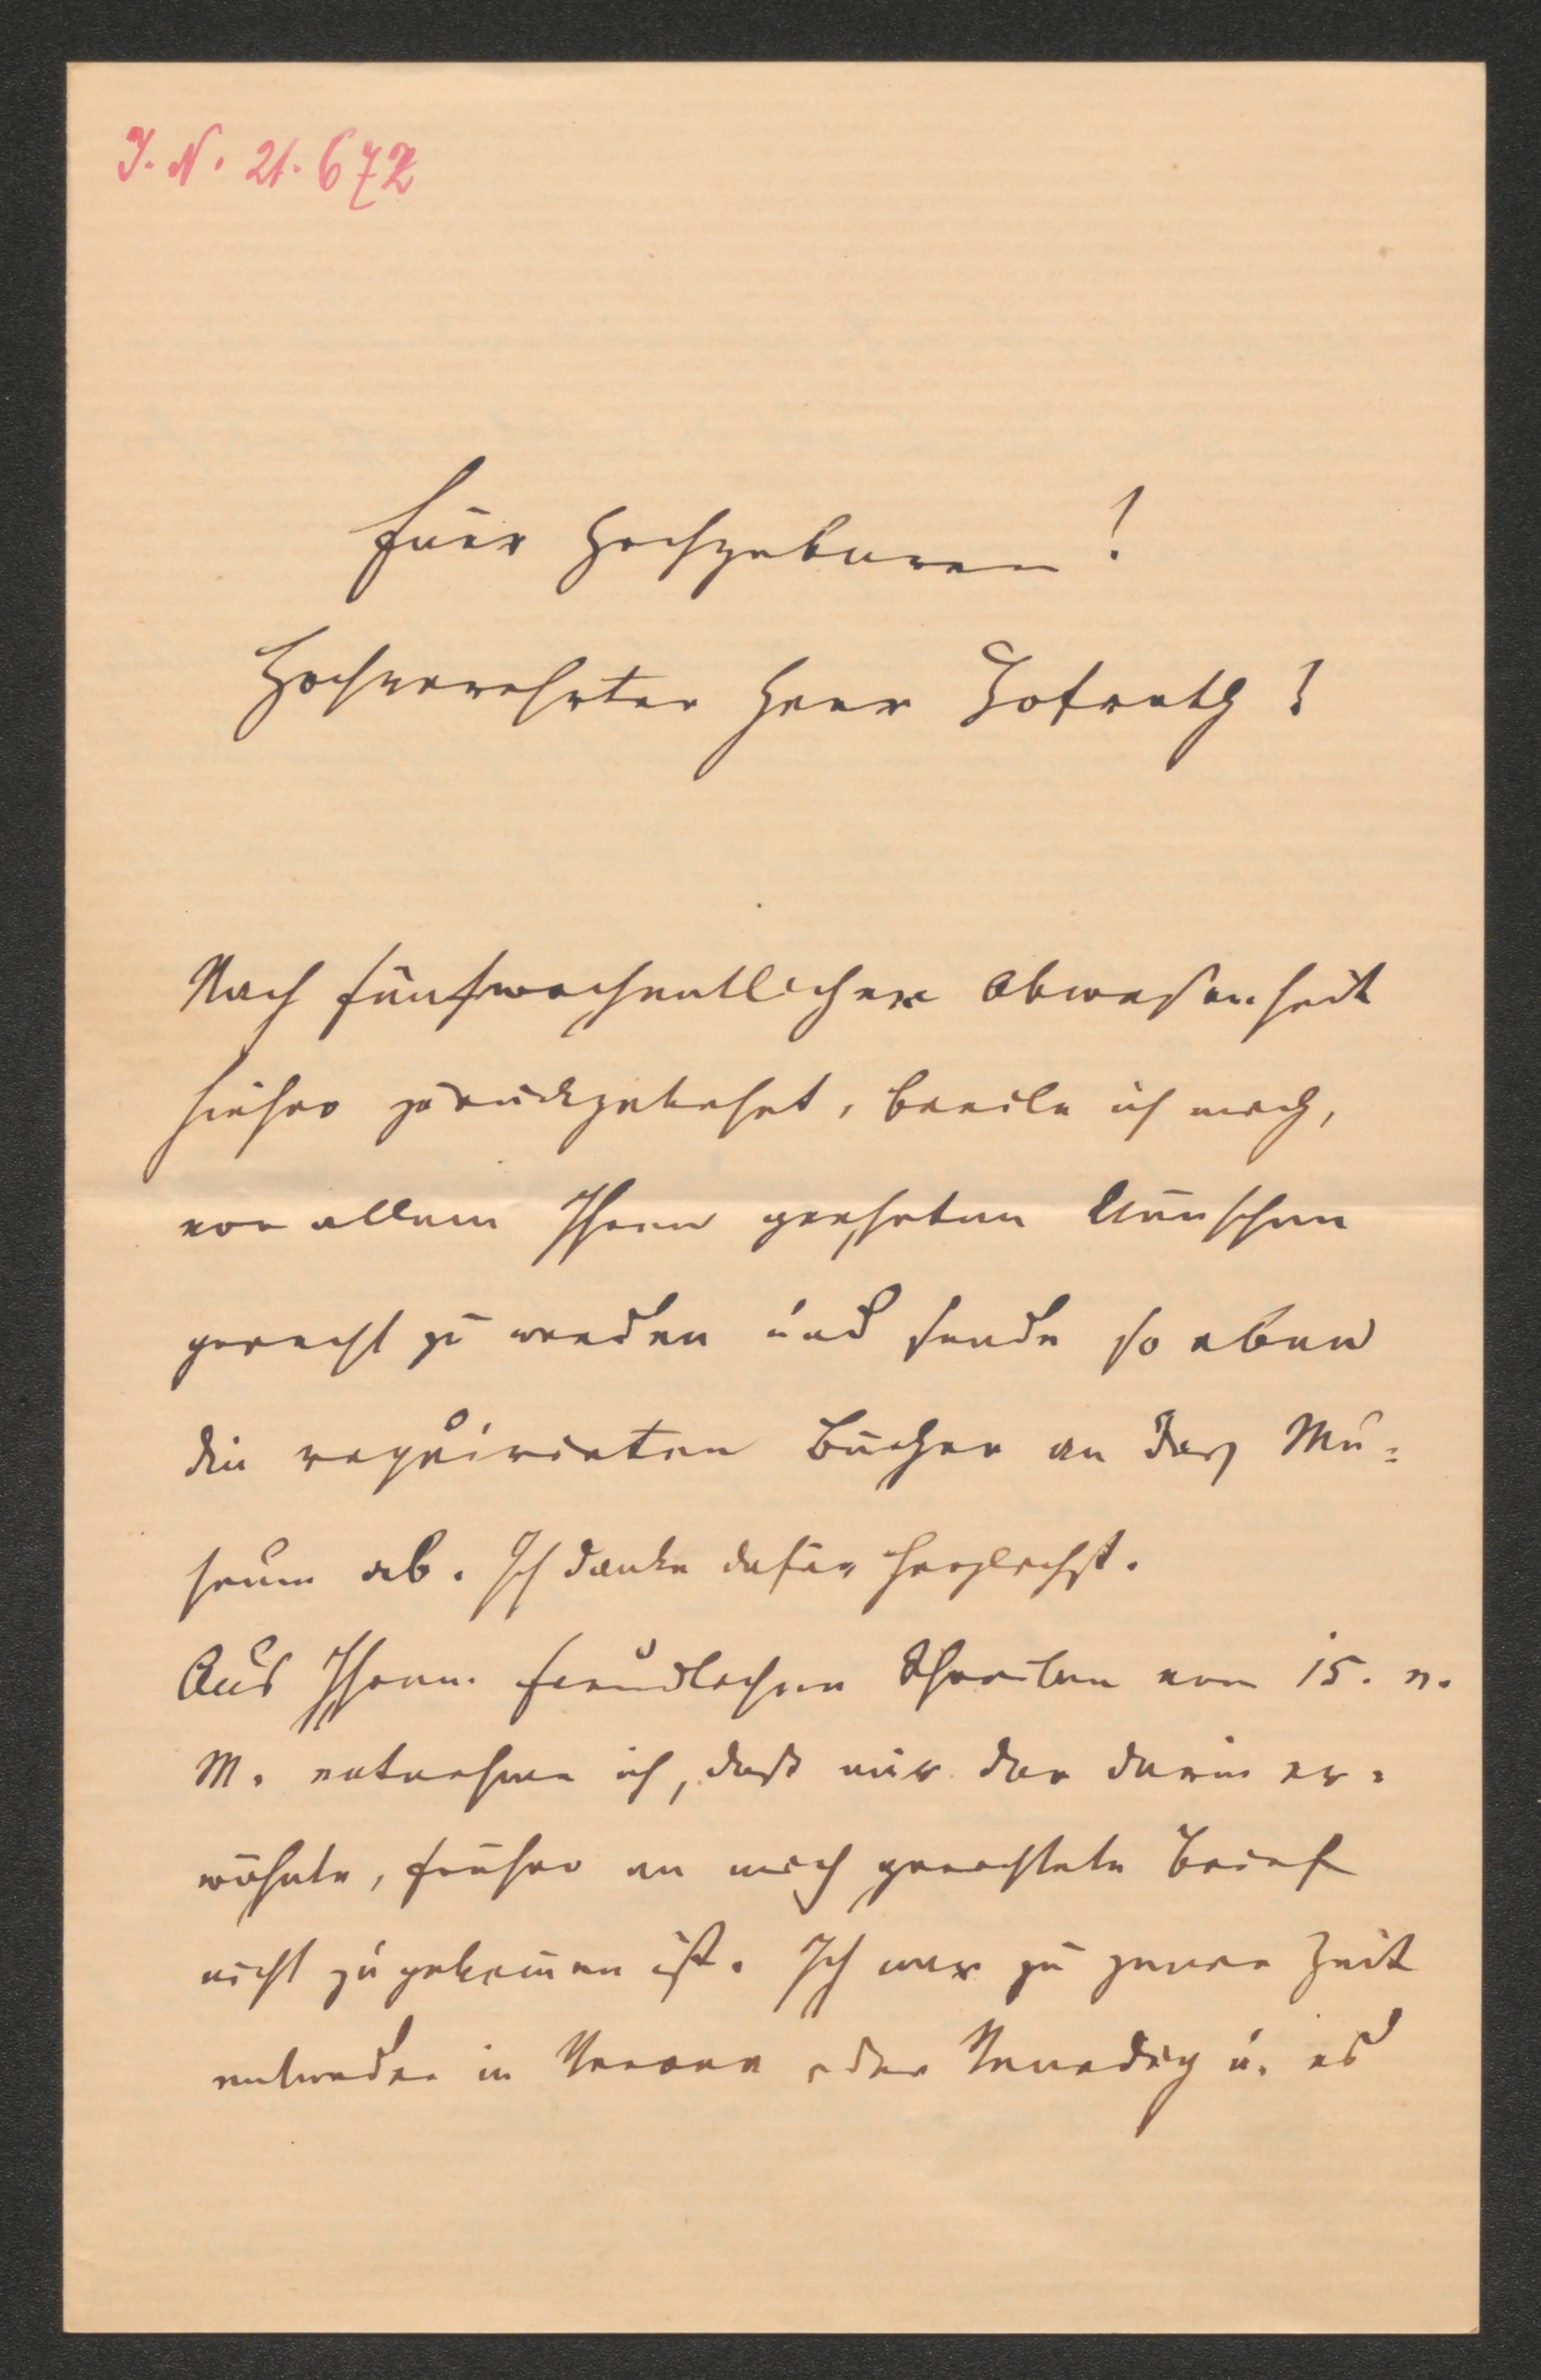 J. N. 21.672
Euer Hochgeboren!
Hochverehrter Herr Hofrath!
Nach fünfwochentlicher Abwesenheit
hieher zurückgekehrt, beeile ich mich,
vor allem Ihren geehrten Wünschen
gerecht zu werden und sende so eben
die requirirten Bücher an das Mu-
seum ab. Ich danke dafür herzlichst.
Aus Ihrem freundlichen Schreiben vom 15. v.
M. entnehme ich, daß mir der darin er-
wähnte, früher an mich gerichtete Brief
nicht zugekommen ist. Ich war zu jener Zeit
entweder in Verona oder Venedig u. es